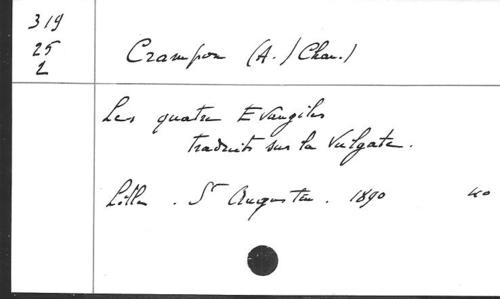 319
25
2
Crampon (A.) Chan.)
Les quatre Evangiles
traduits sur la Vulgate.
Lille . St Augustin . 1890 40